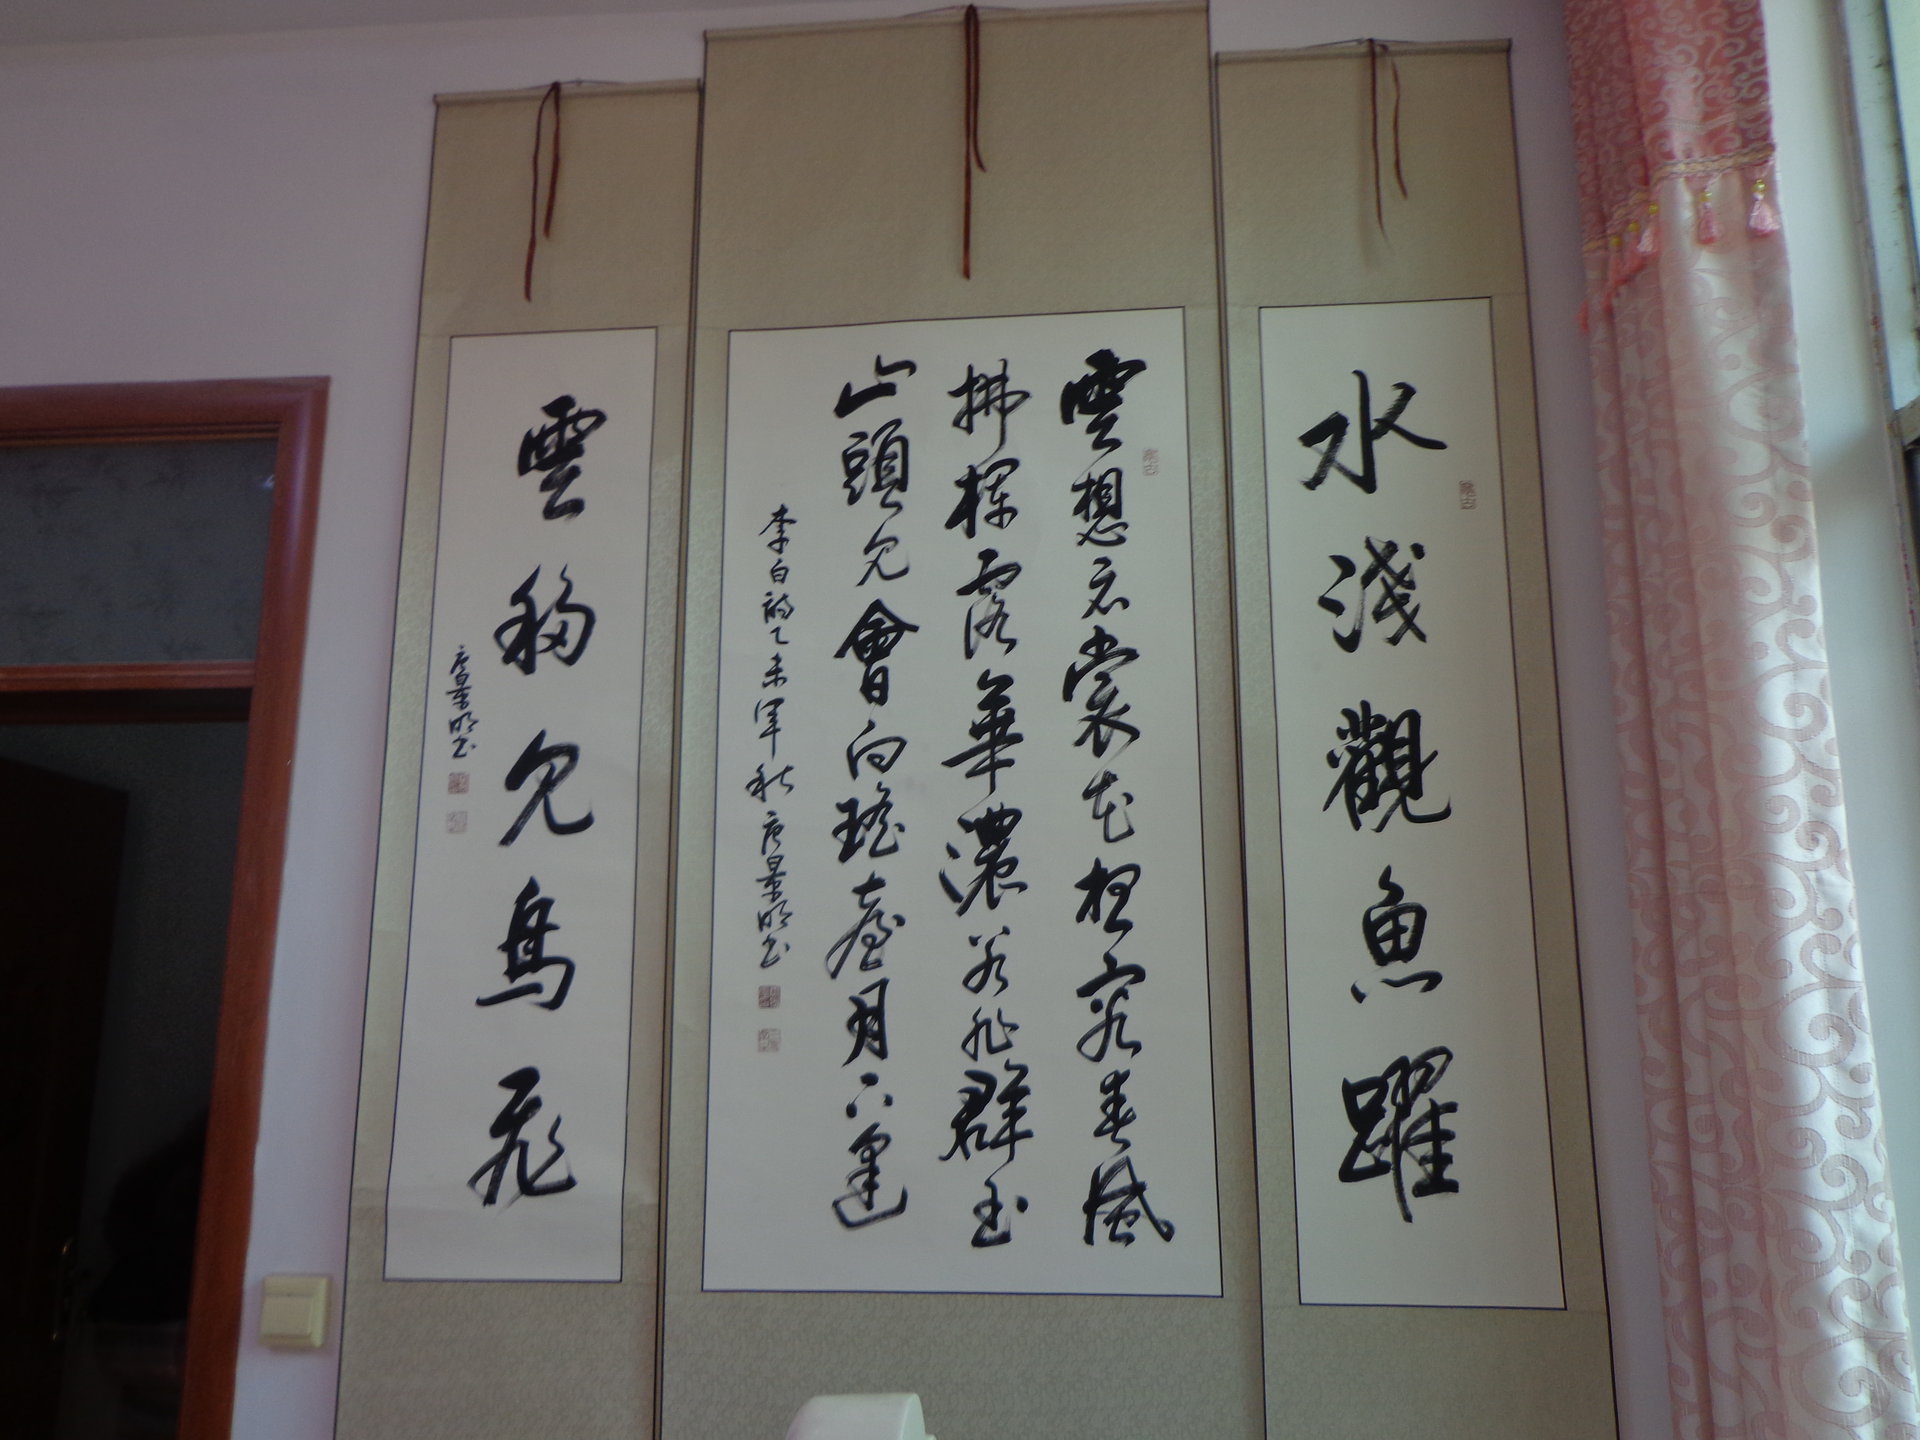 水淺觀魚躍
雲想衣裳花想容春風
拂檻露華濃若非群玉
山頭見會向瑤臺月下逢
李白詩乙未年秋唐景明书
雲移見鳥飛
唐景明书